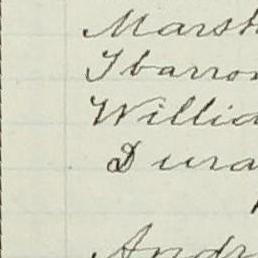 Marsh
Ibarron
Willia
Dura
Andr